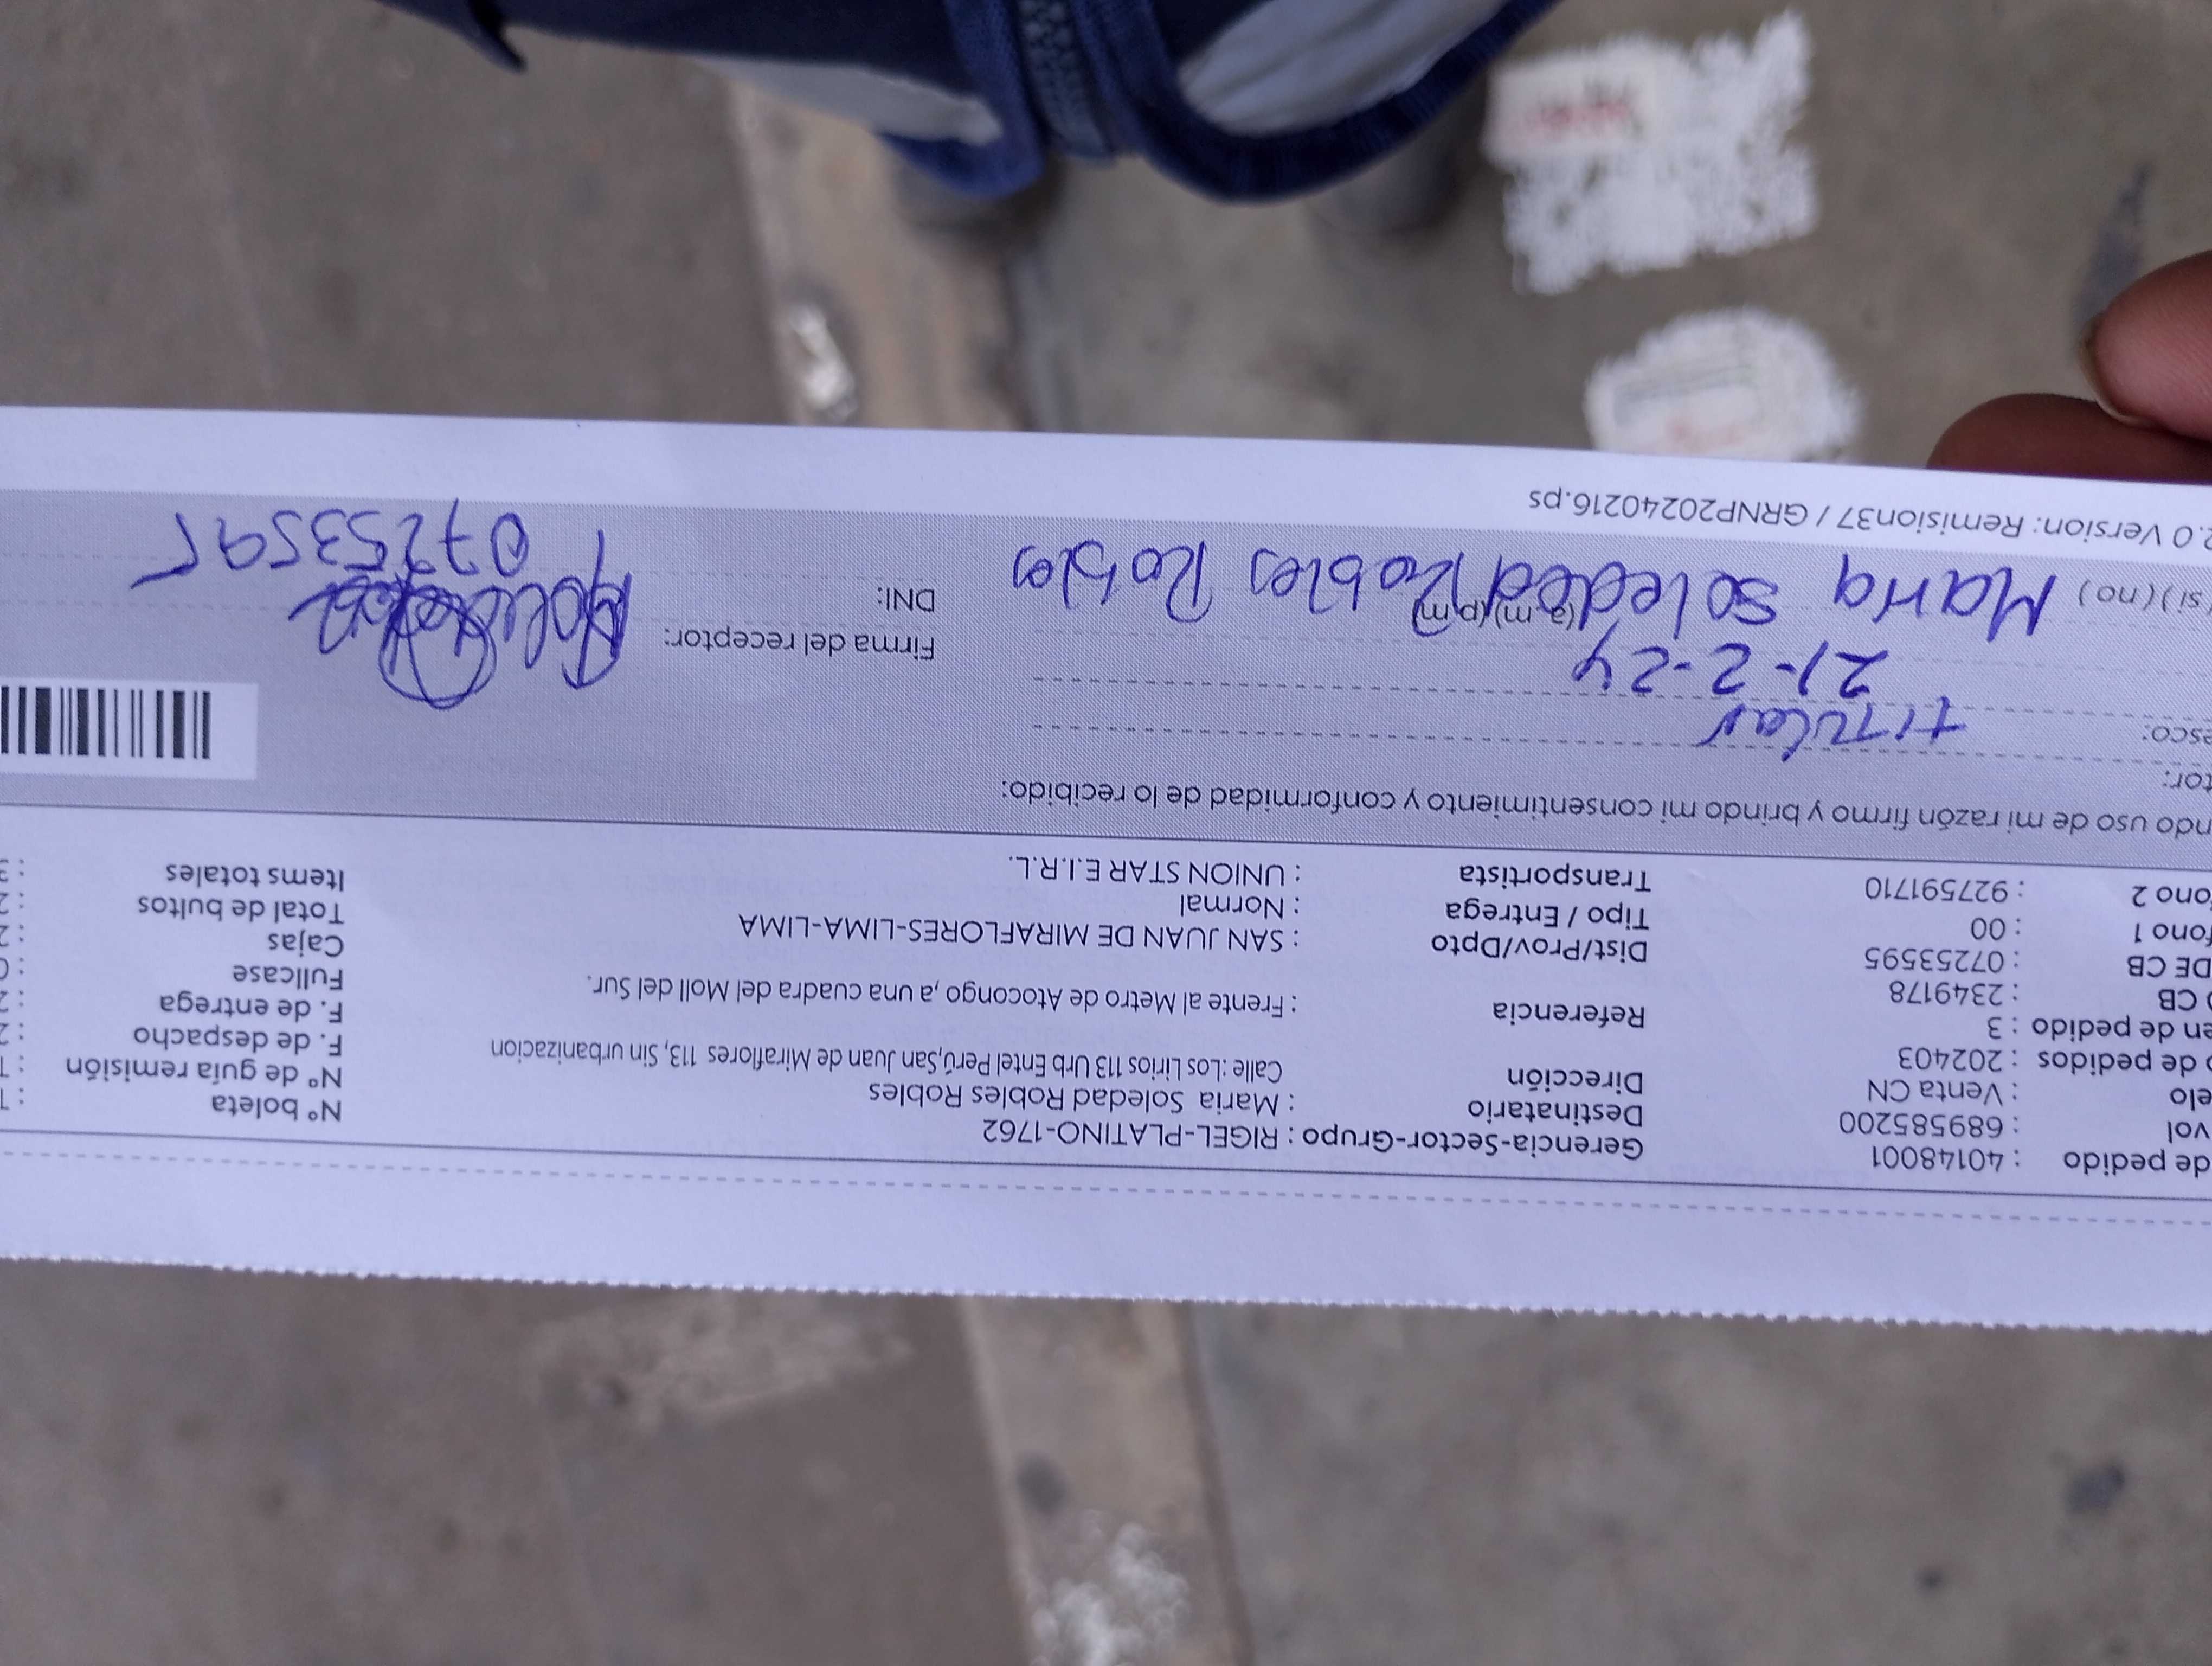 de pedido : 40148001 Gerencia-Sector-Grupo : RIGEL-PLATINO-1762 Nº boleta :
vol : 689585200 Destinatario : Maria Soledad Robles Robles Nº de guía remisión :
elo : Venta CN Dirección Calle :Los Lirios 113 Urb Entel Perú,San Juan de Miraflores 113, Sin urbanizacion F. de despacho : 2
o de pedidos : 202403 F. de entrega : 2
en de pedido : 3 Referencia : Frente al Metro de Atocongo ,a una cuadra del Moll del Sur. Fullcase :
CB : 2349178 Cajas : 2
DE CB : 07253595 Dist/Prov/Dpto : SAN JUAN DE MIRAFLORES-LIMA-LIMA Total de bultos : 2
fono 1 : 00 Tipo / Entrega : Normal Items totales :
ono 2 : 927591710 Transportista : UNION STAR E.I.R.L.
ndo uso de mi razón firmo y brindo mi consentimiento y conformidad de lo recibido:
tor:
esco: titular
21-2-24 Firma del receptor:
si ) ( no ) Maria Soledad Robles Robles (a.m) (p.m) DNI: 07253595
2.0 Version: Remision37 / GRNP20240216.ps